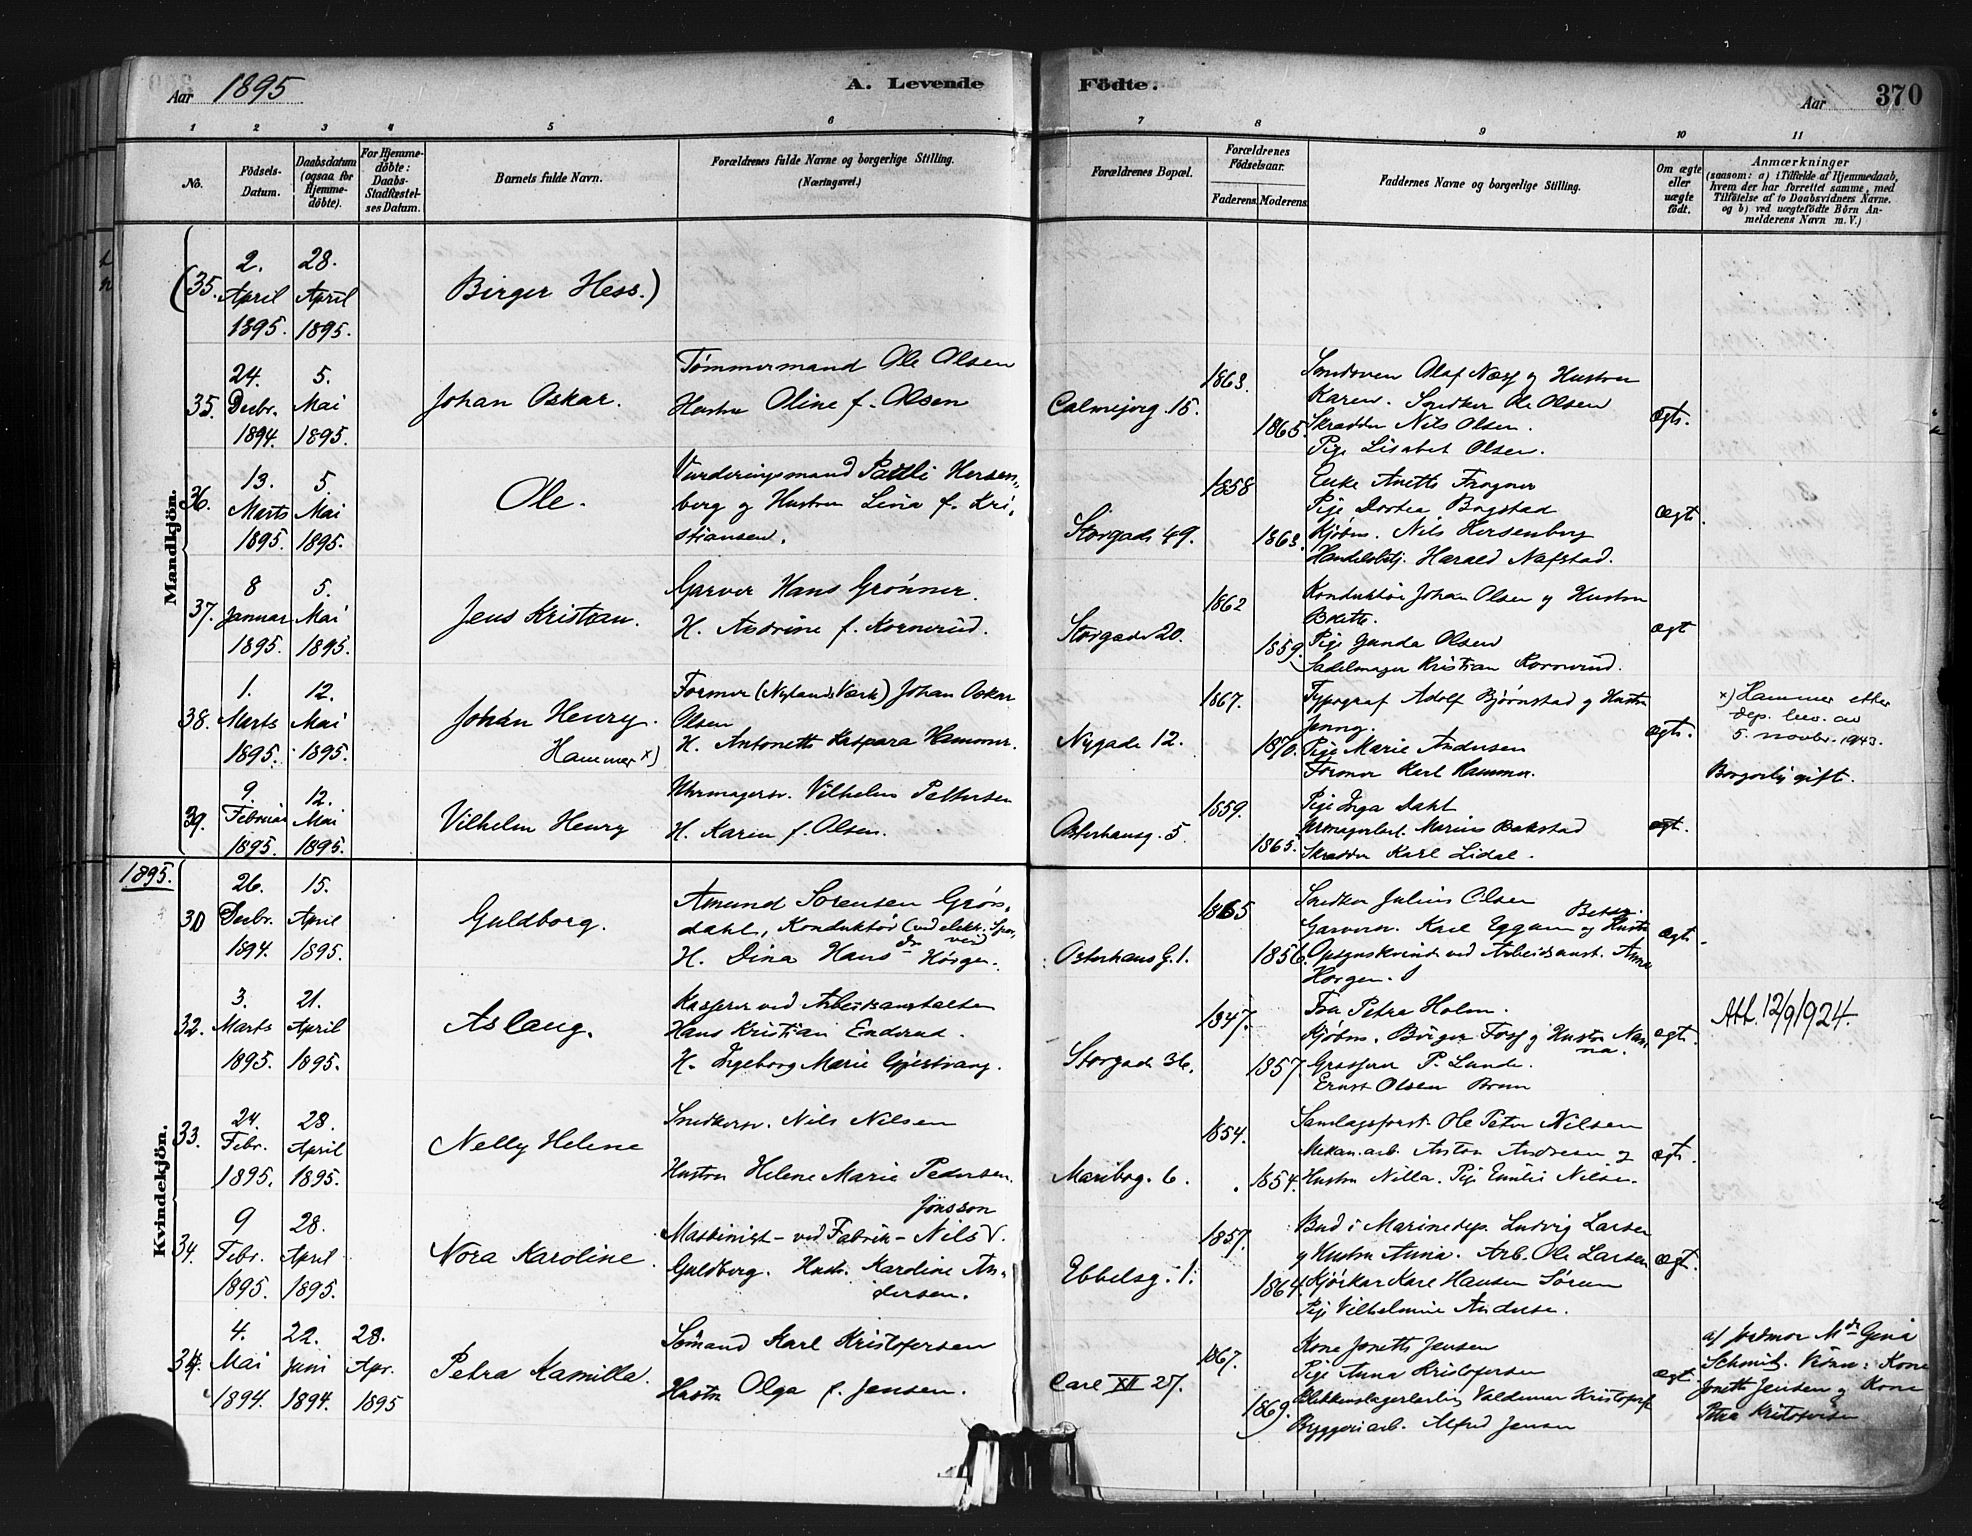 Aar 1895
A. Levende Födte.
Aar 370
1 2 3 4 5 6 7 8 9 10 11
No.
Födsels-Datum.
Daabsdatum (ogsaa for Hjemme-döbte).
For Hjemme-döbte: Daabs-Stadfæstel-ses Datum.
Barnets fulde Navn.
Forældrenes fulde Navne og borgerlige Stilling.
(Næringsvei.)
Forældrenes Bopæl.
Forældrenes Födselsaar.
Faderens. Moderens.
Faddernes Navne og borgerlige Stilling.
Om ægte eller uægte födt.
Anmærkninger
(saasom: a) i Tilfælde af Hjemmedaab,
hvem der har forrettet samme, med
Tilföielse af to Daabsvidners Navne.
og b) ved uægtefödte Börn An-
melderens Navn m. V.)
Mandkjön.
(35. 2. April 1895. 28. April 1895. Birger Hess.)
35. 24. Decbr. 1894. 5. Mai 1895. Johan Oskar.
Tømmermand Ole Olsen
Hustru Oline f. Olsen
Calmejerg. 15. 1863. 1865.
Snedker Ole Olsen
Skrædder Nils Olsen.
Pige Lisabet Olsen.
ægte.
36. 13. Marts 1895. 5 Mai 1895. Ole.
Vurderingsmand Paulli Hersen-
berg og Hustru Lina f. Kri-
stiansen.
Storgade 49. 1858 1863.
Enke Anette Frogner
Pige Dortea Bogstad
Kjøbm. Nils Hersenberg
Harald Nafstad.
ægte.
37. 8 Januar 1895. 5. Mai 1895. Jens Kristian.
Garver Hans Grønner.
H. Andrine f. Kornerud.
Storgade 20. 1862 1859.
Konduktør Johan Olsen og Hustru
Bolette.
Pige Gunda Olsen
Sadelmager Kristian Kornerud.
ægte
38. 1. Marts 1895. 12. Mai 1895. Johan Henry.
Hammer x)
Former (Nylands Værk) Johan Oskar
Olsen
H. Antonette Kaspara Hammer.
Nygade 12. 1867. 1870.
Typograf Adolf Bjørnstad og Hustru
Jenny.
Pige Marie Andersen
Former Karl Hammer.
ægte.
x) Hammer etter
dep. bev. av
5. novbr. 1943.
Borgerlig gift.
39. 9. Februar 1895. 12. Mai 1895. Vilhelm Henry
Uhrmagersv. Vilhelm Pettersen
H. Karen f. Olsen.
Osterhausg. 5. 1859. 1865.
Pige Inga Dahl
Marius Bakstad
Skrædder Karl Lidal.
ægte.
1895.
Kvindekjön.
30 26. Decbr. 1894. 15. April 1895. Guldborg.
Amund Sorensen Grøn-
dahl, Konduktør (ved elektr. Spor-
vei)
H. Dina Hansdr. Horgen.
Osterhaus G. 1. 1865 1856.
Snedker Julius Olsen
Garversv. Karl Eggum og Hustru Betsy.
Opsynskvinde ved Arbeidsanst. Anna
Horgen.
ægte.
32. 3. Marts 1895. 21. April 1895. Aslaug.
Kasserer ved Arbeidsanstalten
Hans Kristian Enderud.
H. Ingeborg Marie Gjestvang.
Storgade 36. 1847. 1857.
Fru Petra Holm.
Kjøbm. Birger Foss og Hustru Nan-
na.
Grosserer P. Lunde.
Ernst Olsen Brun
ægte.
Att. 12/9 1924.
33. 24. Febr. 1895. 28. April 1895. Nelly Helene
Snedkersv. Nils Nilsen
Hustru Helene Marie Pedersen.
Maribog. 6. 1854. 1854.
Samlagsforst. Ole Peter Nilsen
Mekan. arb. Anton Andresen og
Hustru Nilla. Pige Emilie Nilsen.
ægte.
34. 9 Febr. 1895. 28. April 1895. Nora Karoline.
Maskinist - ved Fabrik - Nils Jönsson
Guldberg. Hustr. Karoline An-
dersen.
Ebbelsg. 1. 1857. 1864.
Bud i Marinedep. Ludvig Larsen
og Hustru Anna. Arb. Ole Larsen
Kjørkar Karl Hansen Sørum
Pige Vilhelmine Andersen.
ægte.
34. 4. Mai 1894. 22. Juni 1894. 28. Apr. 1895 Petra Kamilla.
Sømand Karl Kristofersen
Hustru Olga f. Jensen.
Carl XII 27. 1867. 1869.
Kone Jonette Jensen
Pige Anna Kristofersen
Blikkenslagerlærling Valdemar Kristofers.
Bryggeriarb. Alfred Jensen
ægte.
af Jordmor Md. Gina
Schmit. Vidn: Kone
Jonette Jensen og Kone
Petra Kristofersen